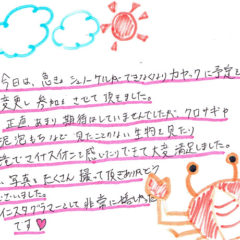 今日は、急きょシュノーケルができなくなりカヤックに予定を
変更し参加させて頂きました。
正直、あまり期待はしていませんでしたが、クロサギや
泥泡もちなど見たことのない生物を見たり
マイナスイオンを感じたりできて大変満足しました。
写真もたくさん撮って頂きありがとう
ございました。
インスタグラマーとして非常に嬉しかった
です♥